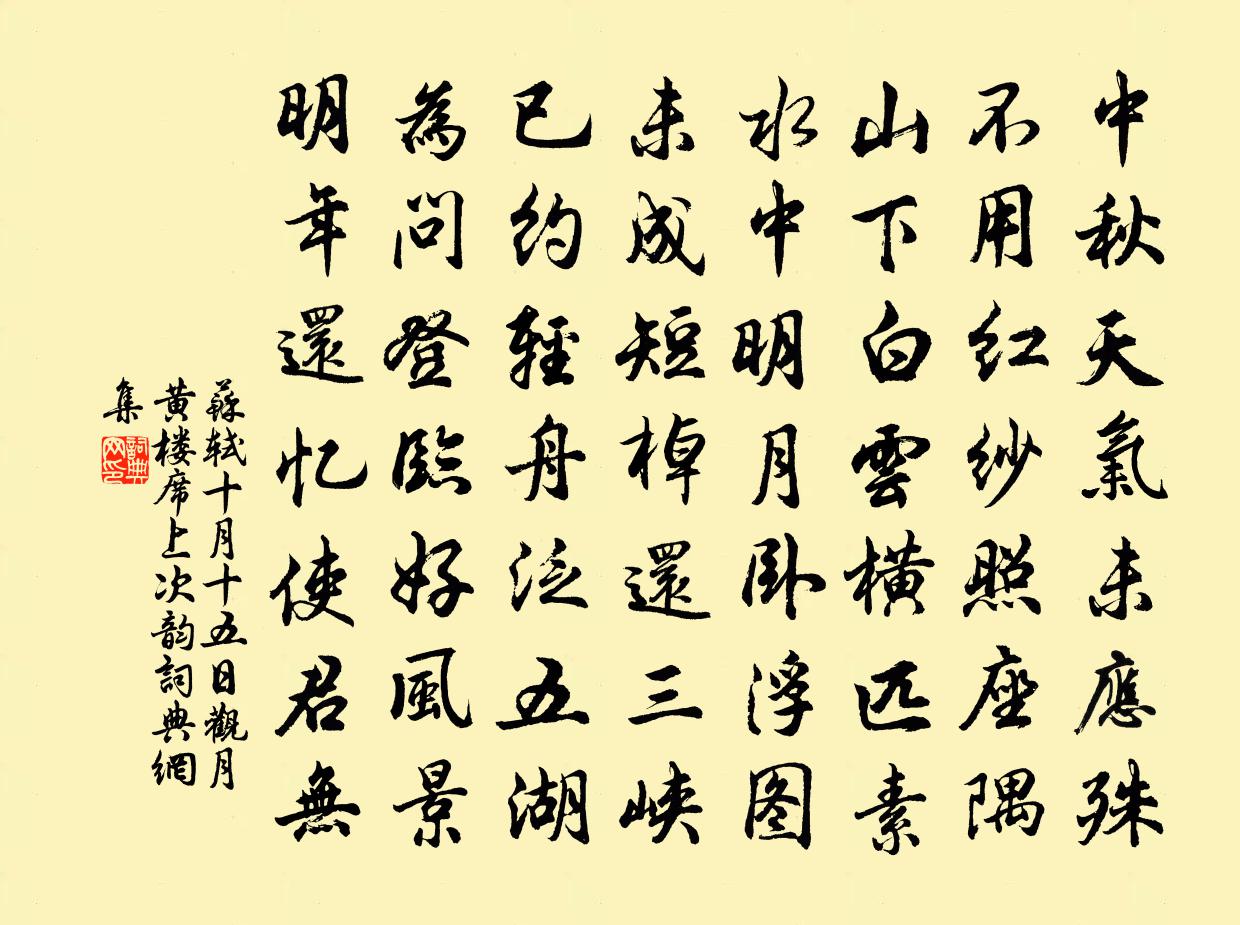 中秋天氣未應殊
不用红纱照座隅
山下白雲橫匹素
水中明月卧浮图
未成短棹還三峡
已约輕舟泛五湖
為问登臨好風景
明年還忆使君無
蘇軾十月十五日觀月
黄楼席上次韵詞典網
集
詞典网印